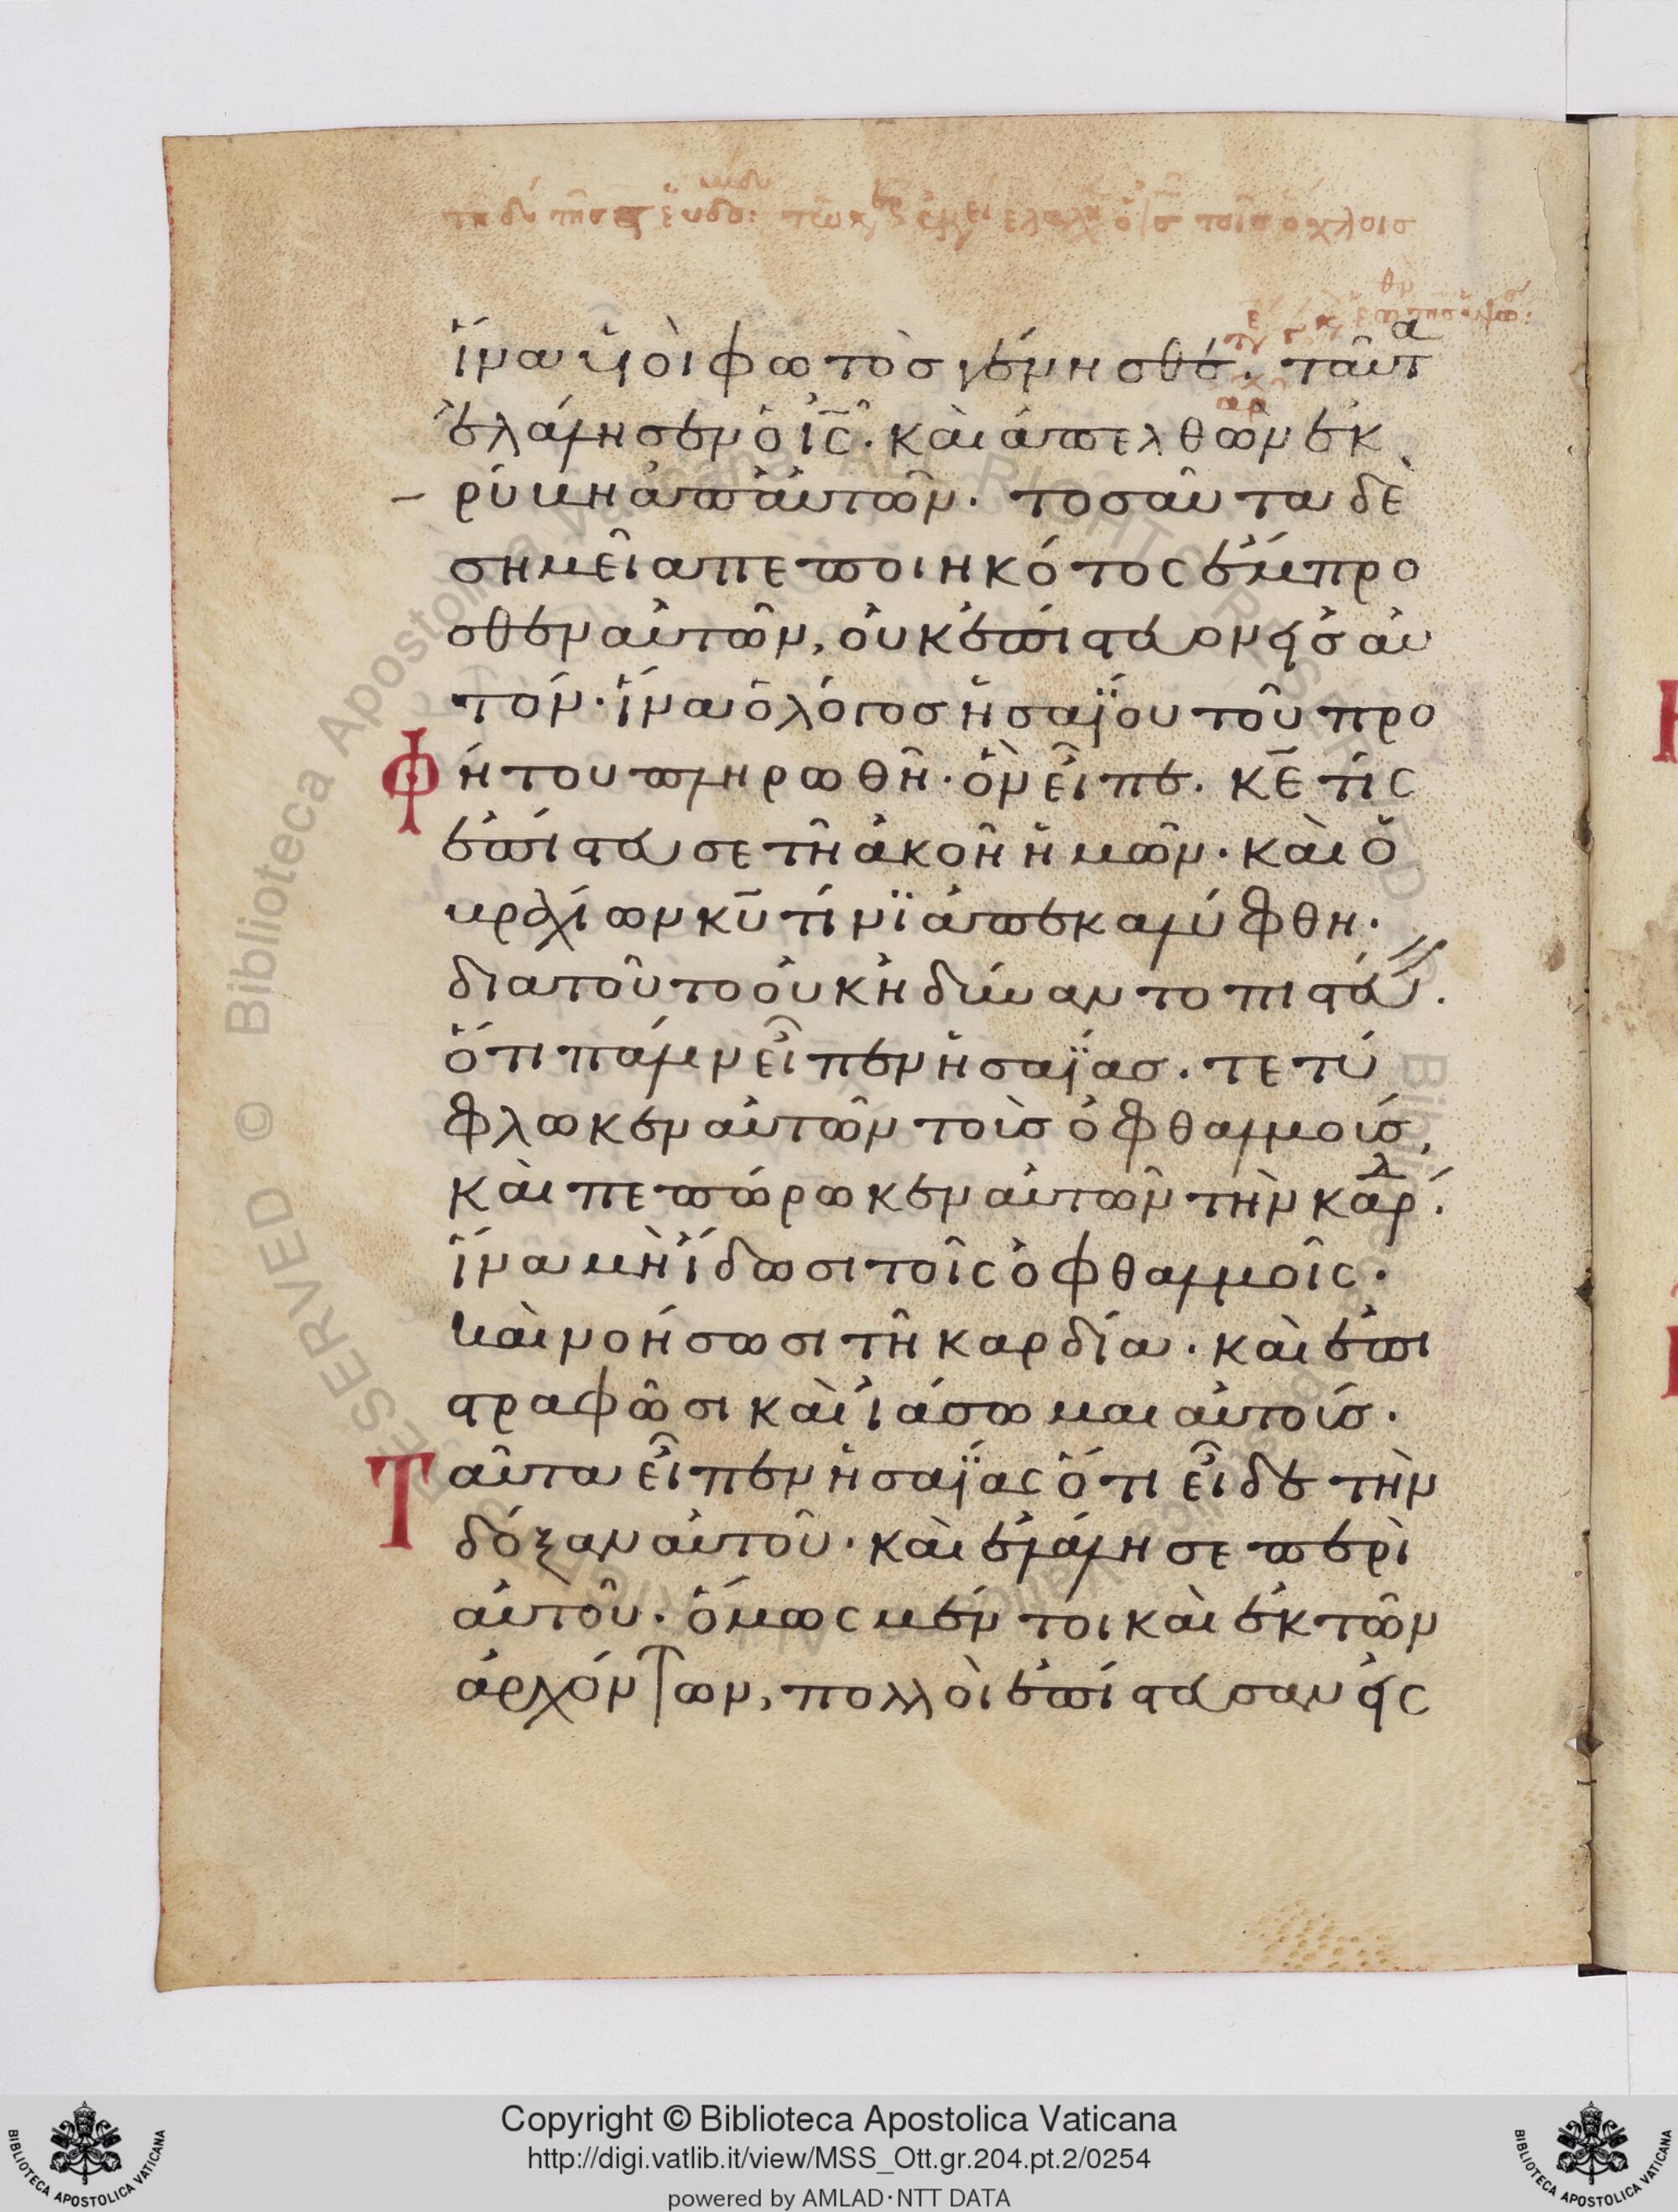 ἵνα υἱοὶ φωτὸσ γένησθε. ταῦτα
ἐλάλησεν ὁ ις̅. καὶ ἀπελθὼν ἐκ
ρύβη ἀπ' ἀυτῶν. τοσαῦτα δὲ
σημεῖα πεποιηκότος ἔμπρο
σθεν ἀυτῶν, ὀυκ ἐπίστευον εἰσ ἀυ
τόν. ἵνα ὁ λόγοσ ἡσαΐου τοῦ προ
φήτου πληρωθῆ. ὃν εἶπε. κε̅ τίς
ἐπίστευσε τῆ ἀκοῆ ἡμῶν. καὶ ὁ
βραχίων κυ̅ τίνι ἀπεκαλύφθη.
διατοῦτο ὀυκ ἠδύναντο πιστεύειν.
ὅτι πάλιν εἶπεν ἡσαΐασ. τετύ
φλωκεν ἀυτῶν τοὺσ ὀφθαλμούσ,
καὶ πεπώρωκεν ἀυτῶν τὴν καρδ.
ἵνα μὴ ἴδωσι τοῖς ὀφθαλμοῖς.
καὶ νοήσωσι τῆ καρδία. καὶ ἐπι
στραφῶσι καὶ ἰάσωμαι ἀυτούσ.
Ταῦτα εἶπεν ἡσαΐας ὅτι εἶδε τὴν
δόξαν ἀυτοῦ. καὶ ἐλάλησε περὶ
ἀυτοῦ. ὅμως μέντοι καὶ ἐκ τῶν
ἀρχόντων, πολλοὶ ἐπίστευσαν εἰς
Copyright © Biblioteca Apostolica Vaticana
http://digi.vatlib.it/view/MSS_Ott.gr.204.pt.2/0254
powered by AMLAD·NTT DATA
BIBLIOTECA APOSTOLICA VATICANA
BIBLIOTECA APOSTOLICA VATICANA